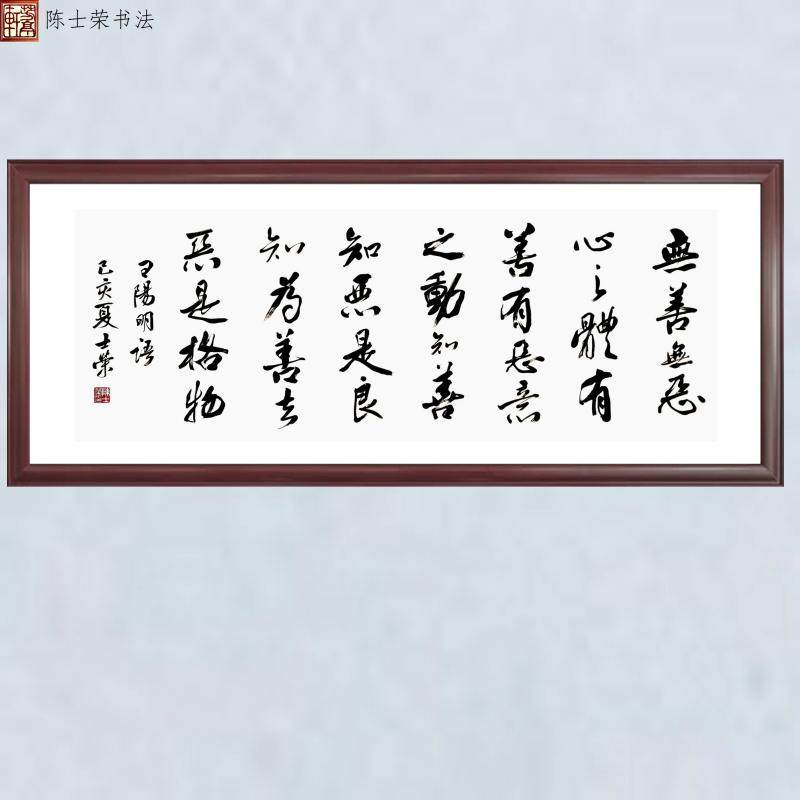 陈士荣书法
無善無惡
心之體有
善有惡意
之動知善
知惡是良
知為善去
惡是格物
王陽明语
己亥夏士荣